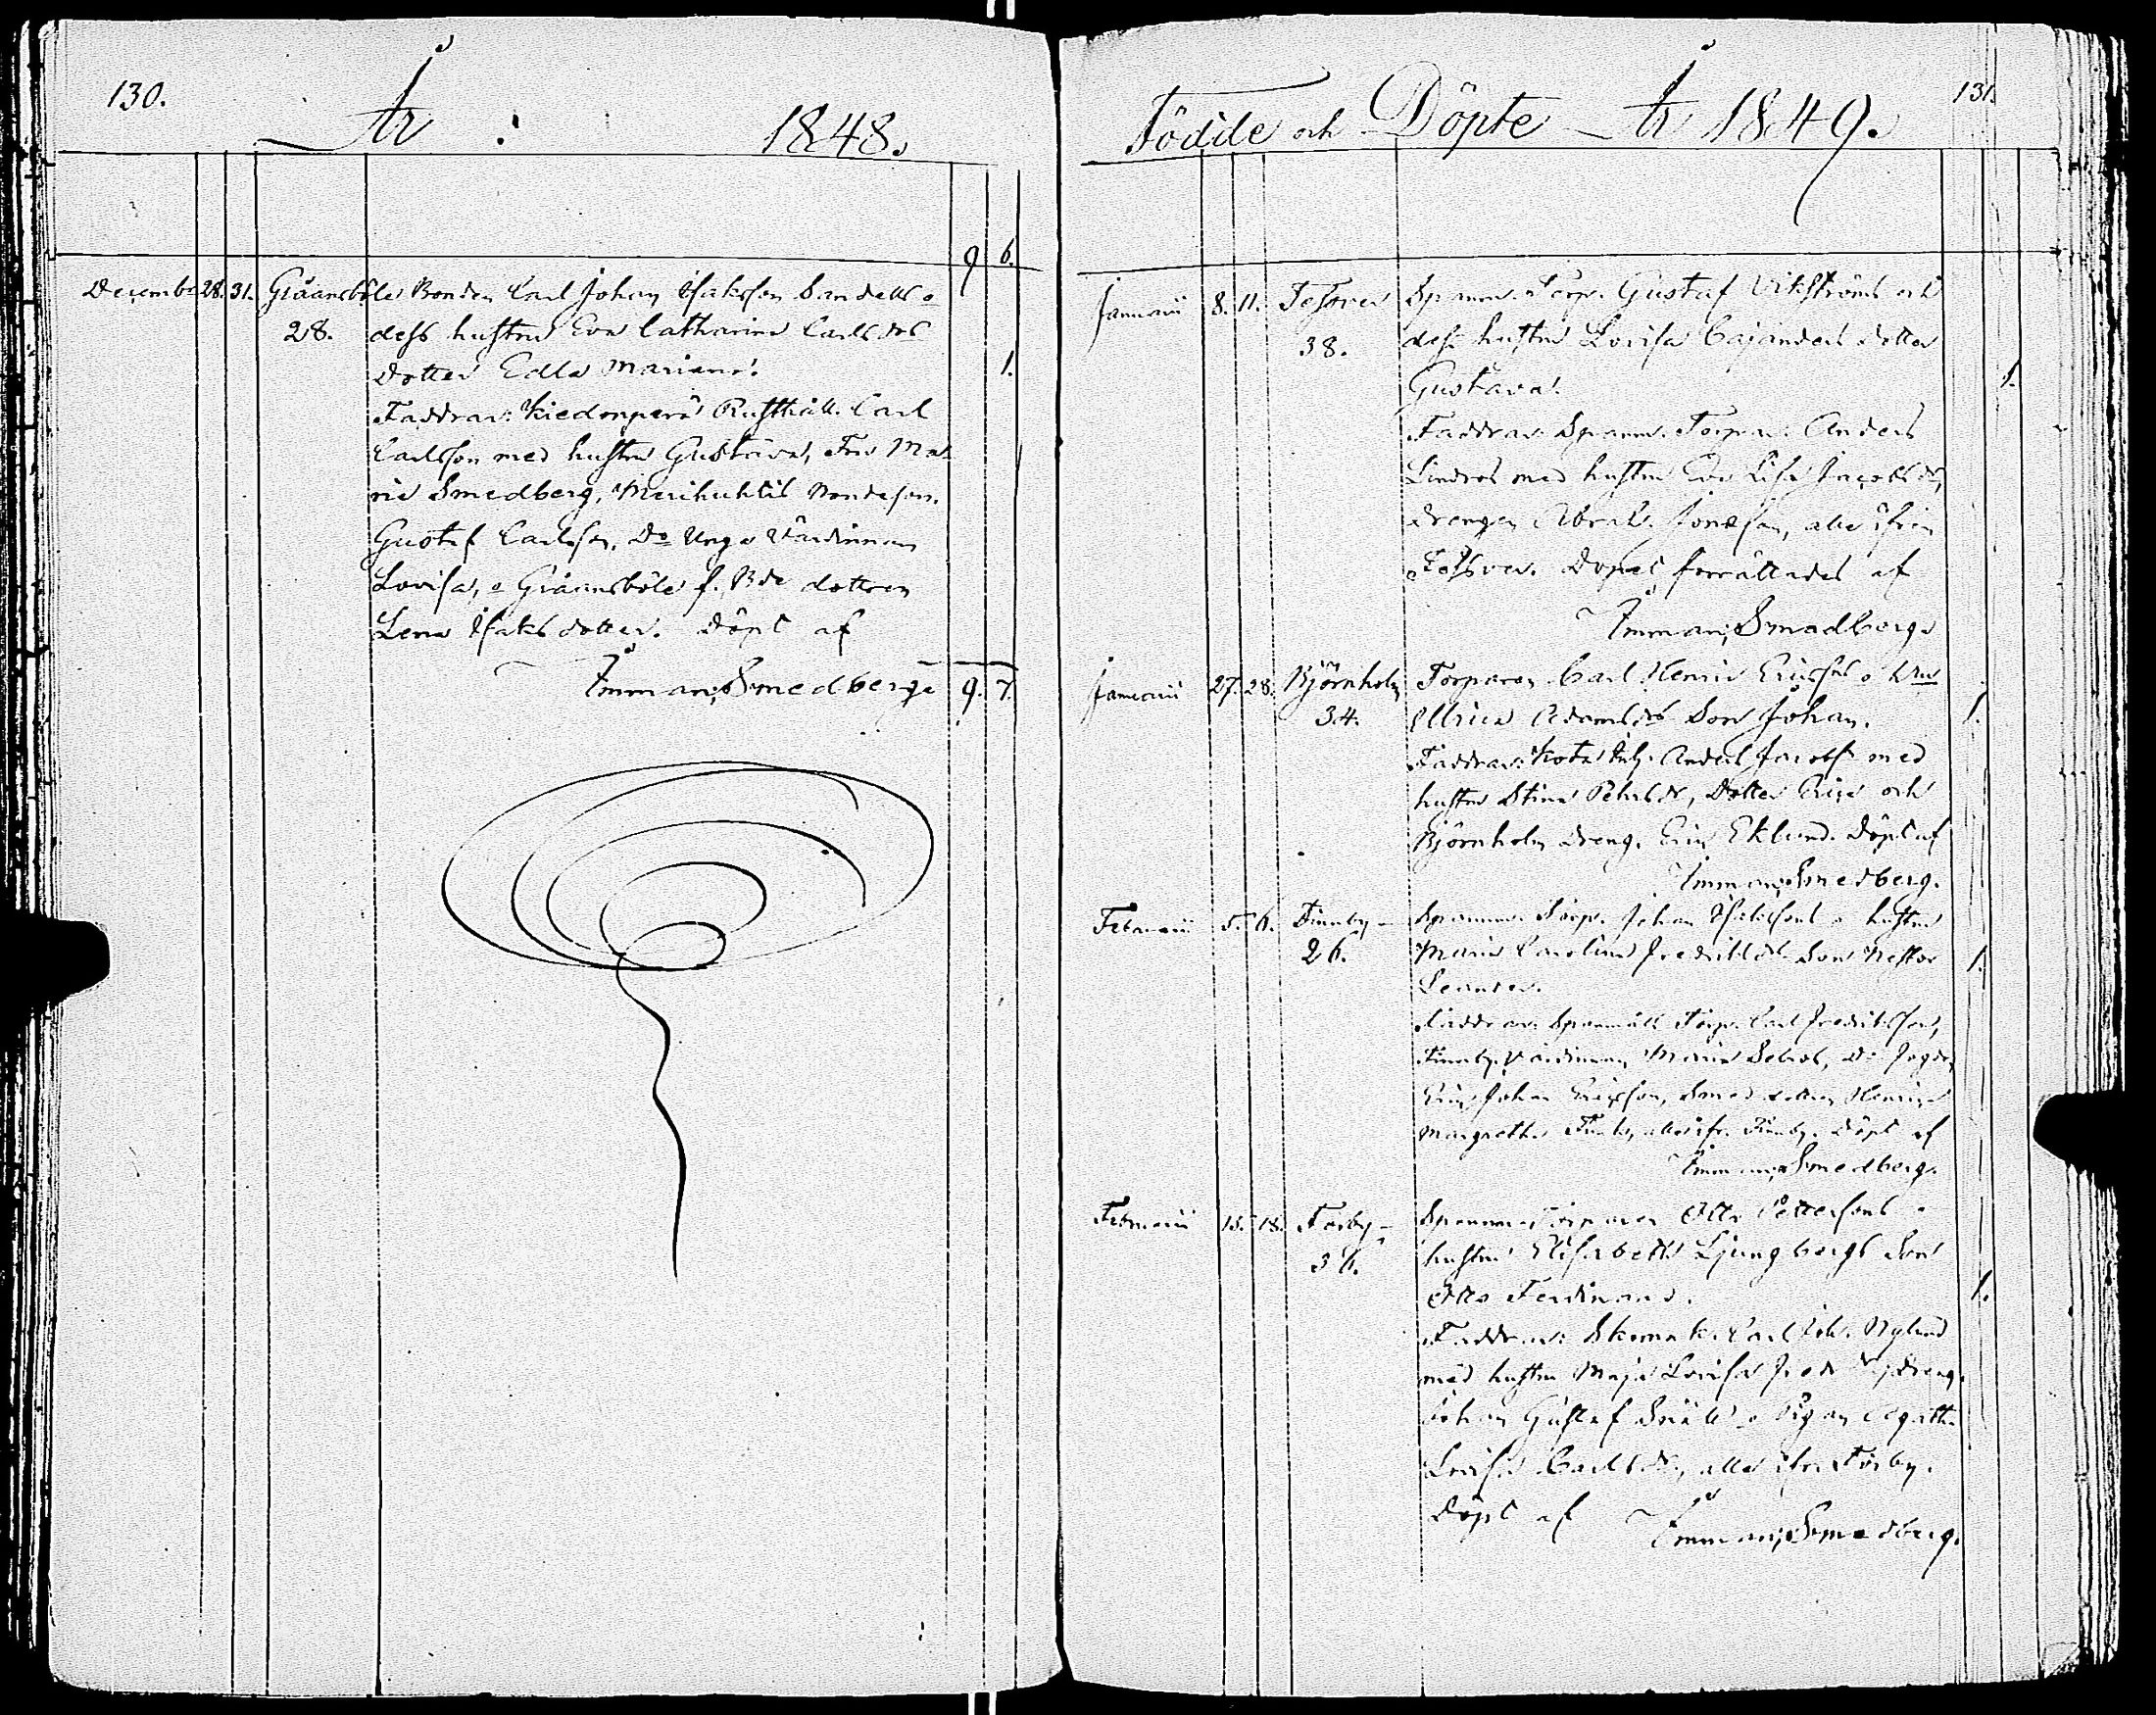 130.
År 1848.
9 6.
December 28. 31. Gråansböle Bonden Carl Johan Isaksson Sandells o
28. dess hustru Eva Catharina Carlsdrs
Dotter Edla Mariana. 1.
Faddrar: Kiedonperä Rusthåll. Carl
Carlsson med hustru Gustava, Fru Ma-
ria Smedberg, Merikuhtis Bondeson.
Gustaf Carlsson, Do Unga Värdinnan
Lovisa, o Gråansböle f. Bde dottren
Lena Isaksdotter. Döpt af
Imman; Smedberg. 9. 7.
131.
Födde och Döpte År 1849.
Januarii 8. 11. Spanm. Torp. Gustaf Vikströms och
38. dess hustru Lovisa Cajanders dotter
Gustava. 1.
Faddrar: Spanm. Torpar. Anders
Lindros med hustru Eva Lisa Jacobsdr,
Drengen Abrah. Jonasson, alla ifrån
Dopet förrättades af
Imman; Smedberg.
Januarii 27. 28. Björnholm Torparen Carl Henric Ericssons o hru
34. Ulrica Adamsdrs Son Johan. 1.
Faddrar: Anders Jacobss. med
hustru Stina Pehrsdr, Dotter och
Björnholm Dreng. Eric Eklund. Döpt af
Imman; Smedberg.
Februarii 5. 6. Finnby Spanmm. Torp. Johan Isakssons o hustru
26. Maria Carolina Fredriksdrs Son Nestor 1.
Leander.
Faddrar: Spanmåls Torp. Carl Fredriksson,
Finnby Värdinnan Maria Do
Johan Ericsson, Smed dottren Henrica
Margretha alla ifr. Finnby. Döpt af
Imman; Smedberg.
Februarii 15. 18. Förby
36. Spanm. Torparen Otto Pettersons o
hustru Elisabeth Ljungbergs Son
Otto Ferdinand. 1.
Faddrar: Skomak. Carl Joh. Nylund
med hustru Maja Lovisa dreng.
Johan Gustaf o Pigan Agatha
Lovisa Carlsdr, alla ifrn Förby.
Döpt af Imman; Smedberg.